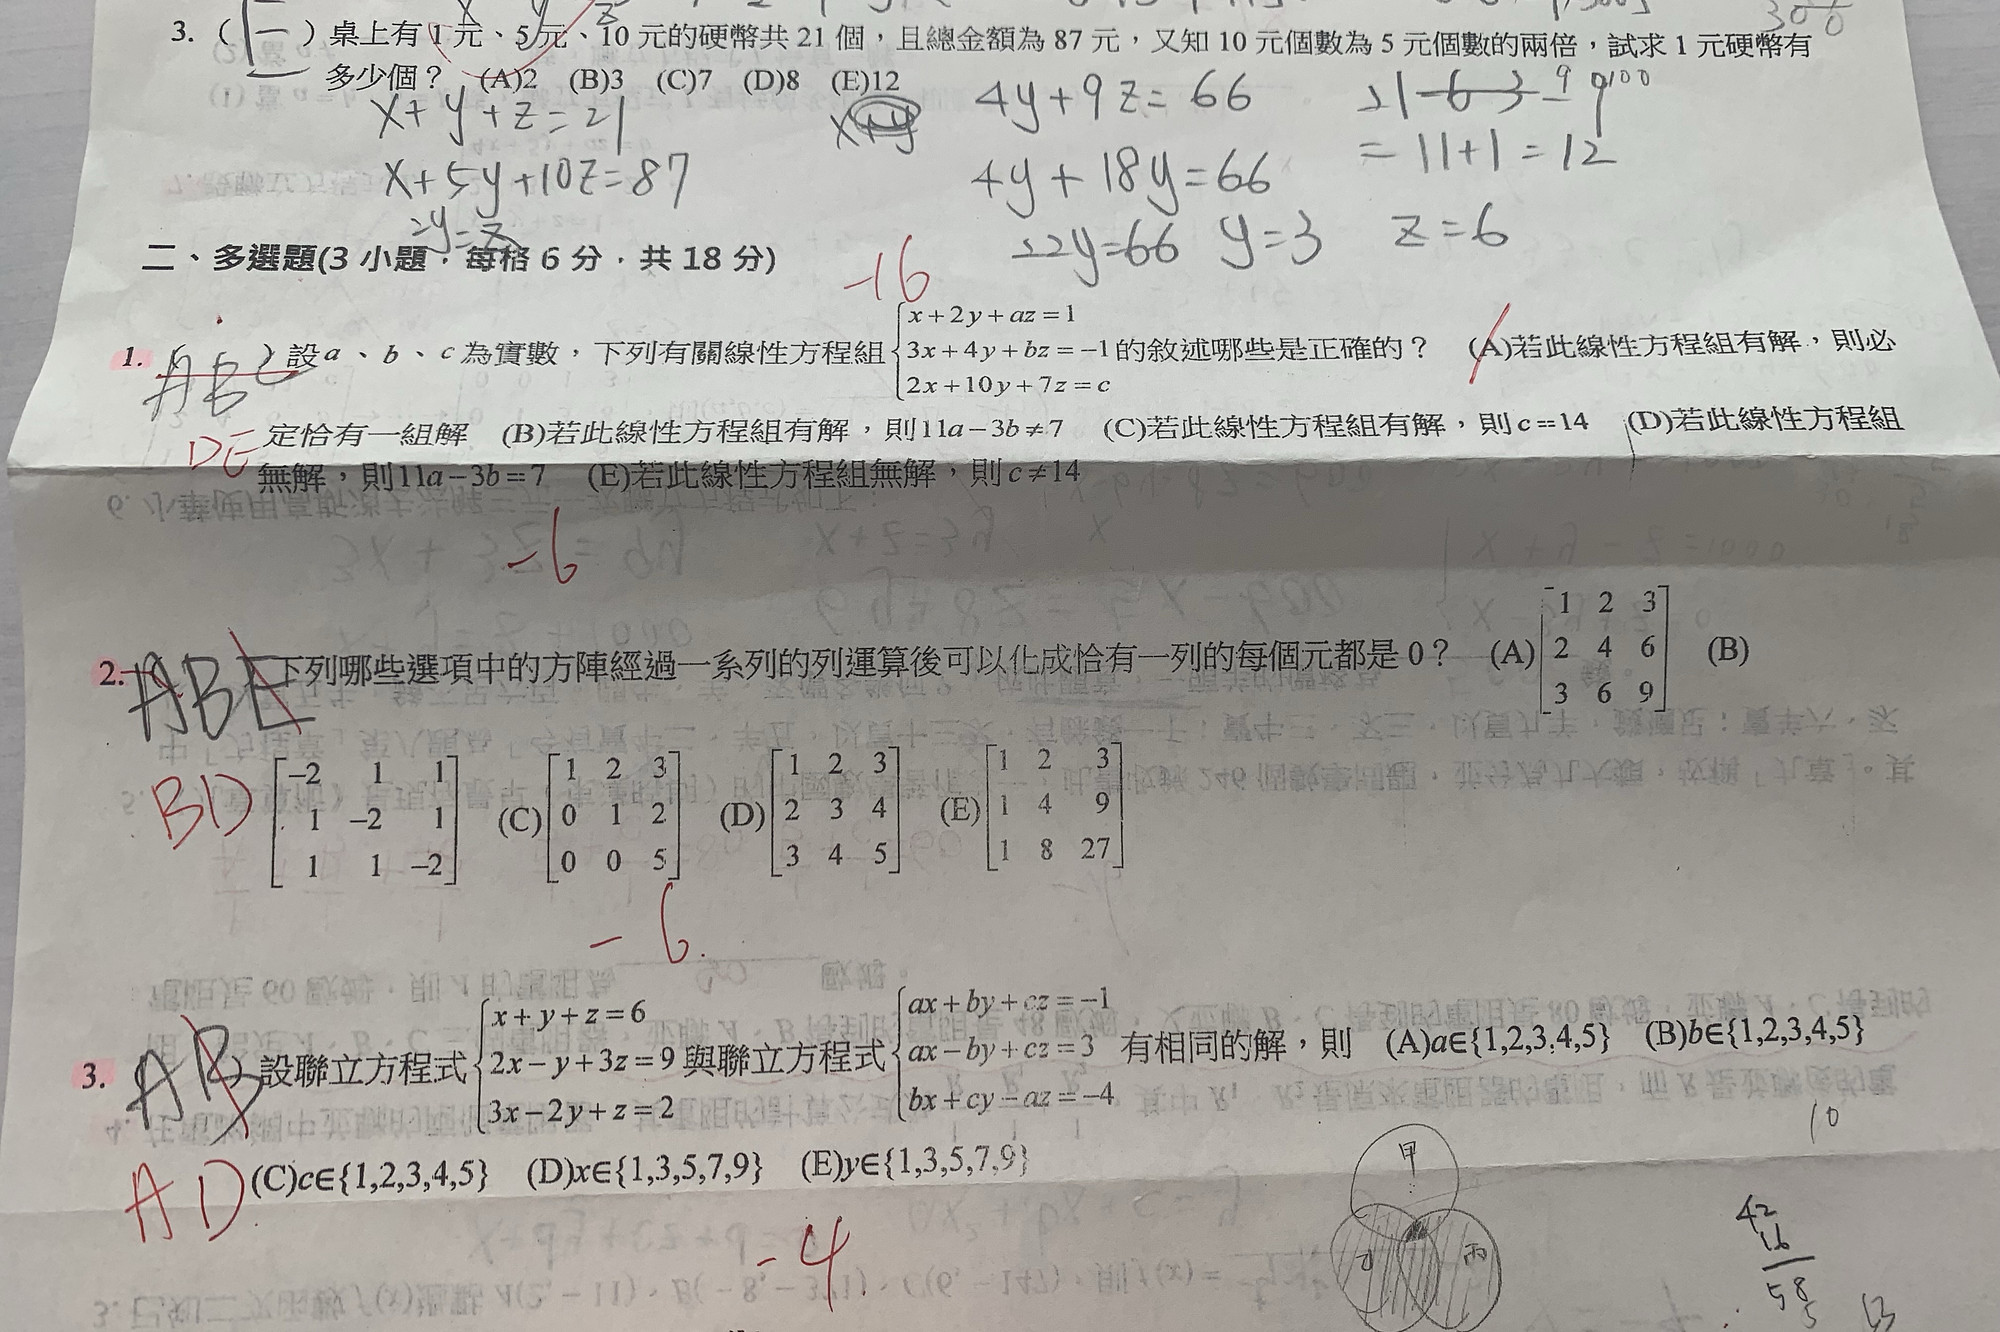 3.（ ）桌上有1元、5元、10元的硬幣共21個，且總金額為87元，又知10元個數為5元個數的兩倍，試求1元硬幣有
多少個？ (A)2 (B)3 (C)7 (D)8 (E)12
x+y+z=21
x+5y+10z=87
2y=z
4y+9z=66
4y+18y=66
22y=66 y=3 z=6
21-6-3
=11+1=12
二、多選題(3小題，每格6分，共18分)
-16
1. ABC
設a、b、c為實數，下列有關線性方程組 x+2y+az=1
3x+4y+bz=-1
2x+10y+7z=c
的敘述哪些是正確的？ (A)若此線性方程組有解，則必
定恰有一組解 (B)若此線性方程組有解，則11a-3b≠7 (C)若此線性方程組有解，則c=14 (D)若此線性方程組
無解，則11a-3b=7 (E)若此線性方程組無解，則c≠14
DE
-6
2. ABE
下列哪些選項中的方陣經過一系列的列運算後可以化成恰有一列的每個元都是0？ (A)
1 2 3
2 4 6
3 6 9
(B)
-2 1 1
1 -2 1
1 1 -2
(C)
1 2 3
0 1 2
0 0 5
(D)
1 2 3
2 3 4
3 4 5
(E)
1 2 3
1 4 9
1 8 27
BD
-6
3. AB
設聯立方程式
x+y+z=6
2x-y+3z=9
3x-2y+z=2
與聯立方程式
ax+by+cz=-1
ax-by+cz=3
bx+cy-az=-4
有相同的解，則 (A)a∈{1,2,3,4,5} (B)b∈{1,2,3,4,5}
(C)c∈{1,2,3,4,5} (D)x∈{1,3,5,7,9} (E)y∈{1,3,5,7,9}
AD
-4
10
甲
乙 丙
42
16
58